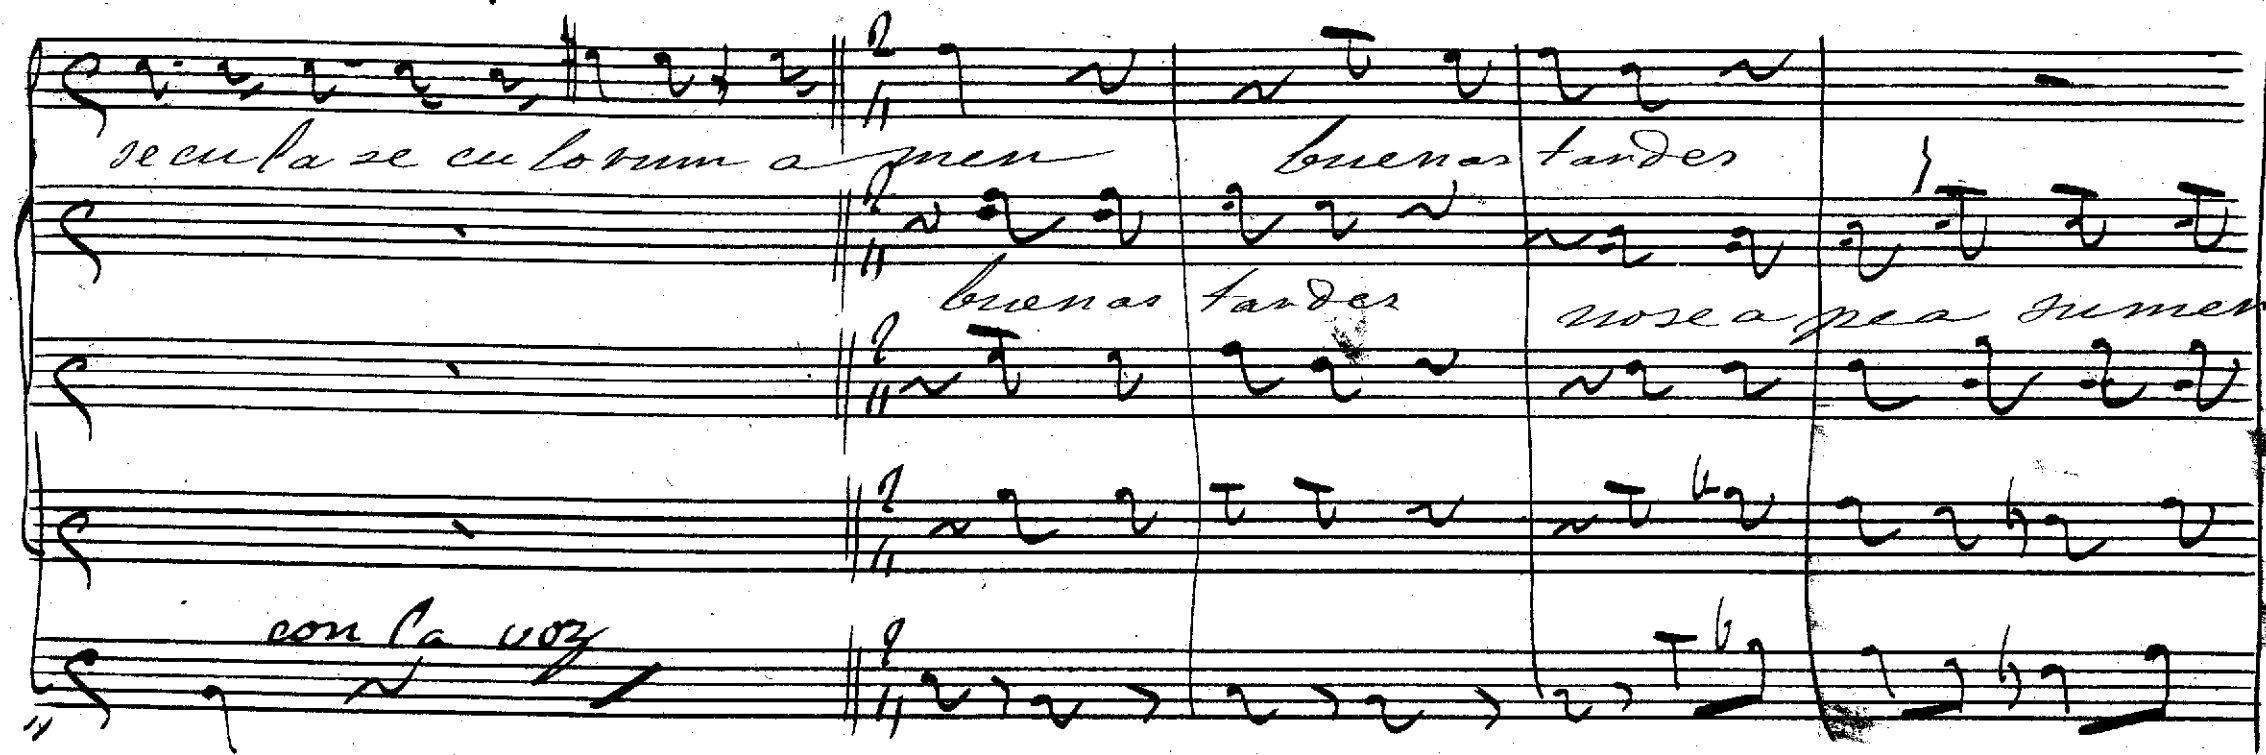 secula se cu lorum a men buenas tardes
buenas tardes no se a pea sumer
con la voz